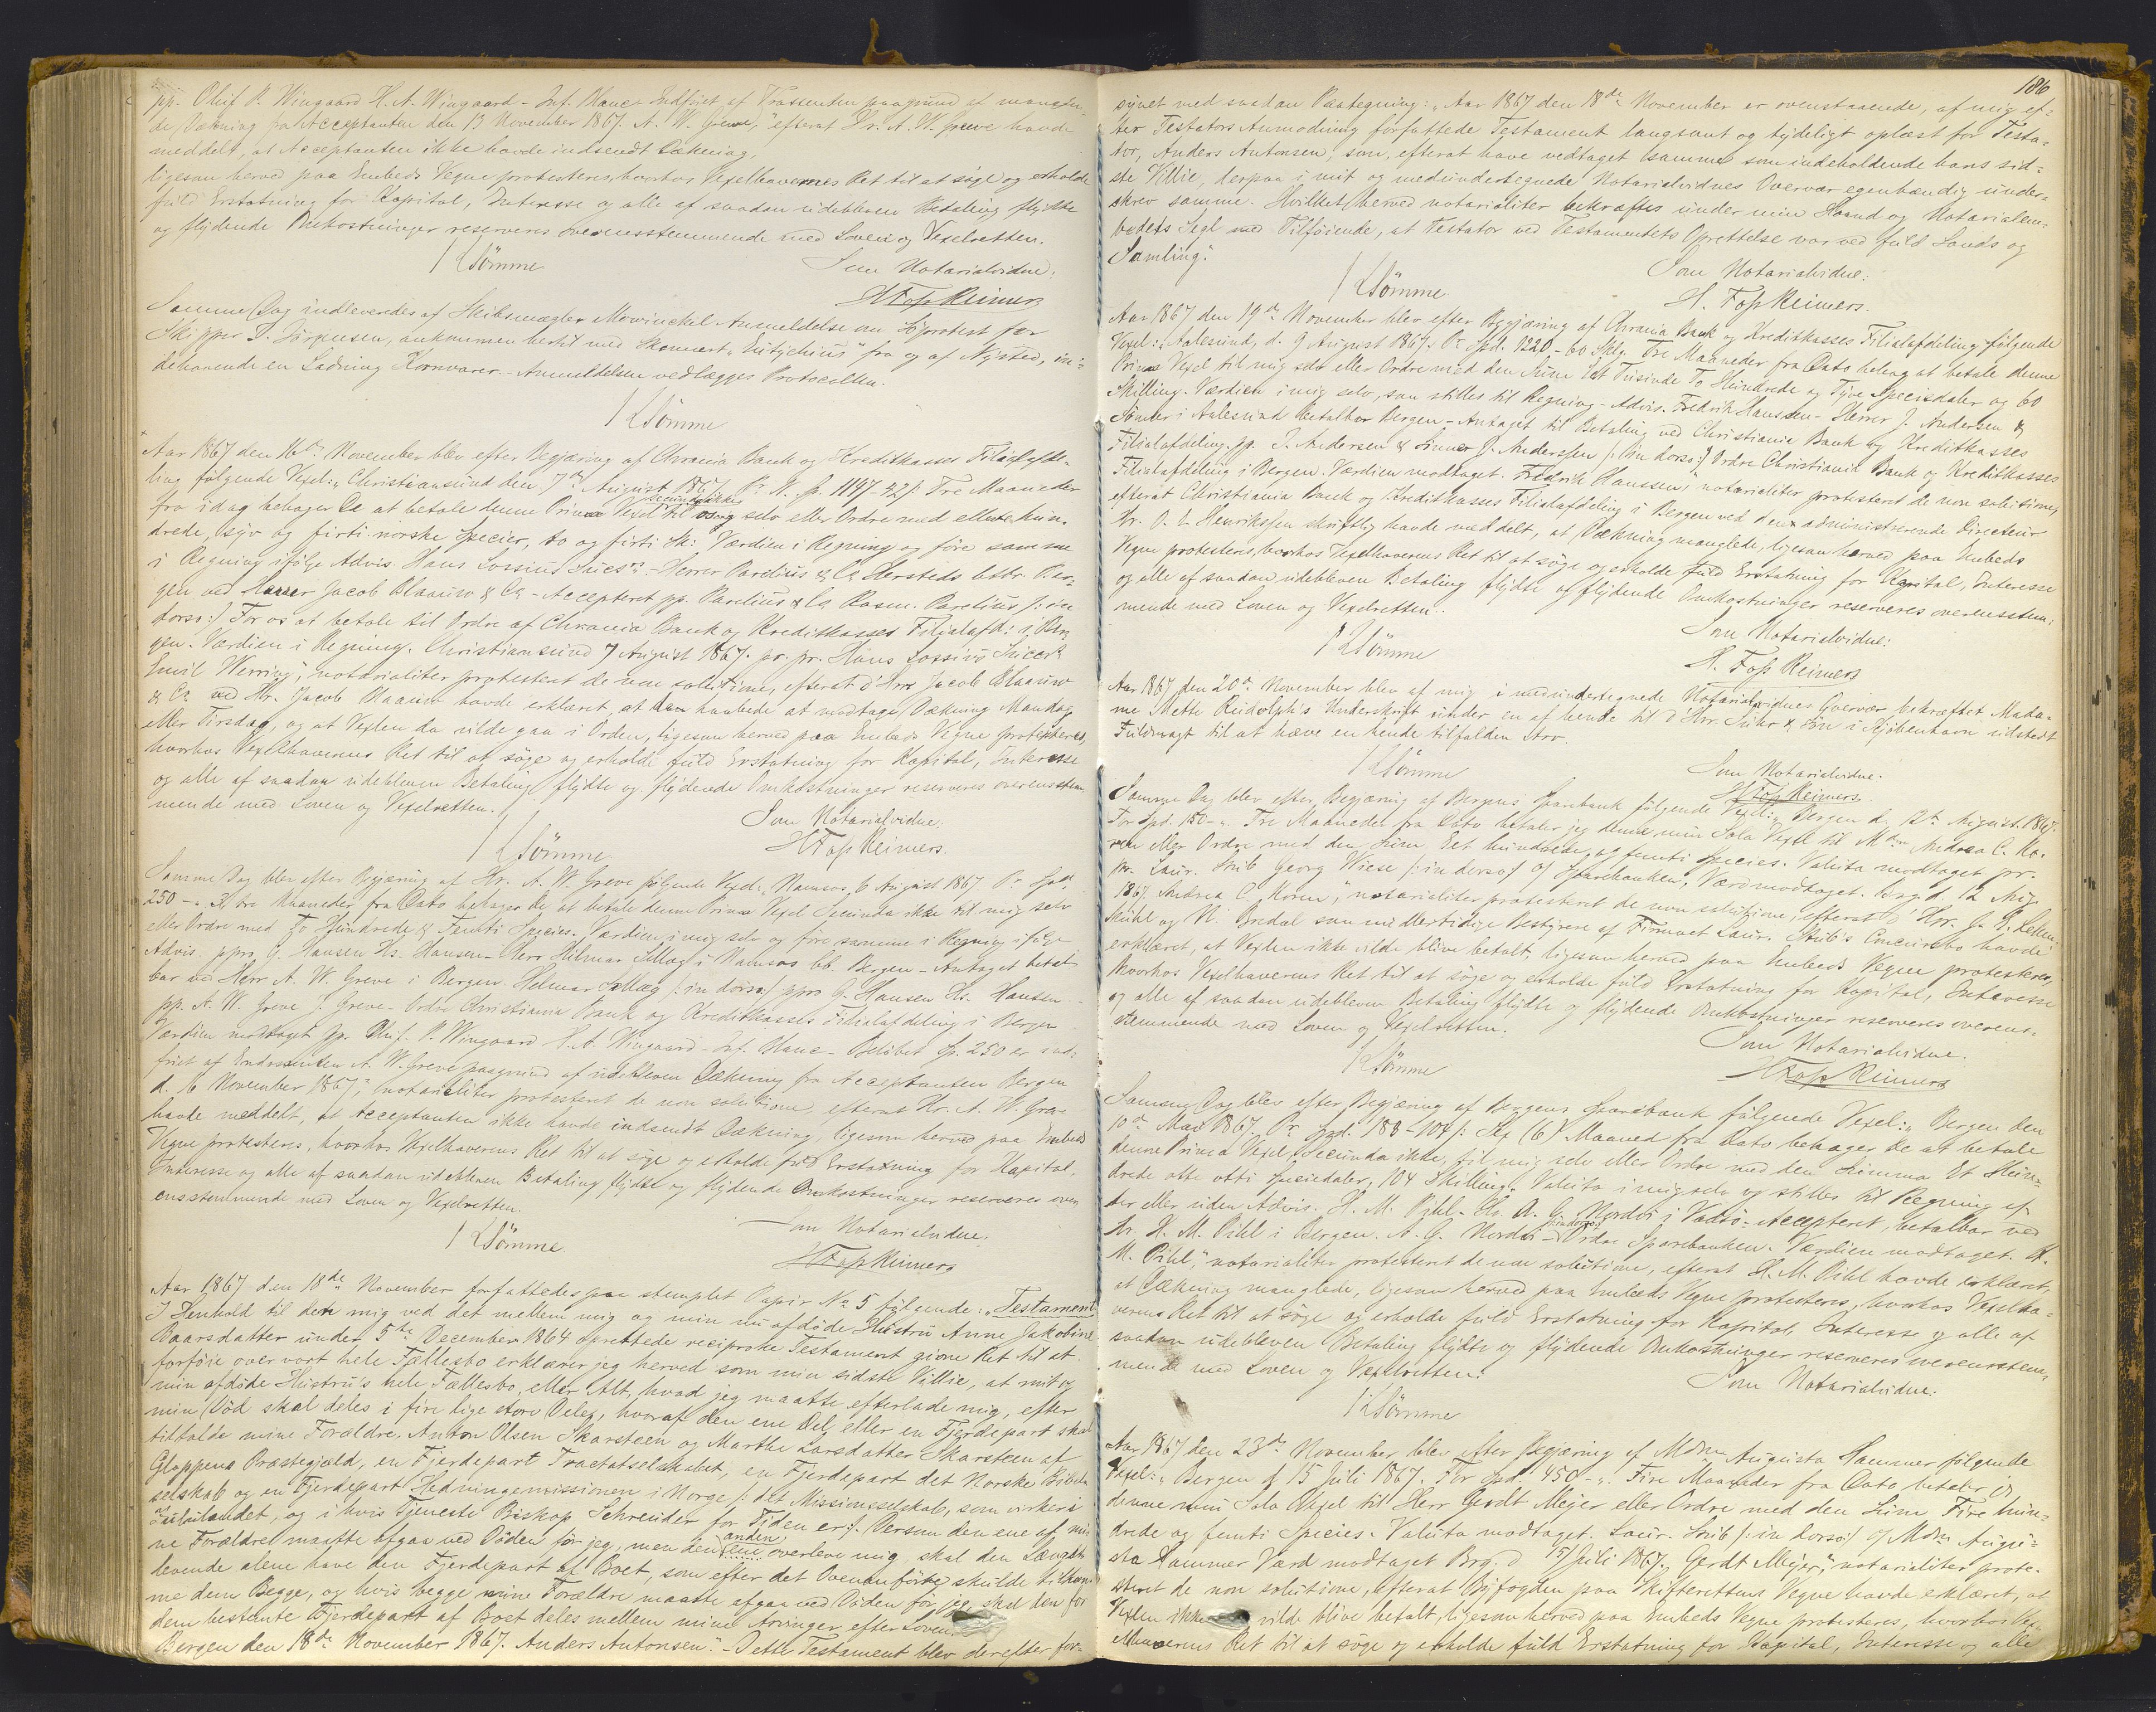 pp. Oluf P. Wingaard H. A. Wingaard - Inf. Blanc. Indfriet af Trassenten paagrund af manglen-
de Dækning fra Acceptanten den 13 November 1867. A. W. Greve," efterat Hr. A. W. Greve havde
meddelt, at Acceptanten ikke havde indsendt Dækning,
ligesom herved paa Embeds Vegne protesteres, hvorhos Vexelhavernes Ret til at søge og erholde
fuld Erstatning for Kapital, Interesse og alle af saadan udebleven Betaling flydte
og flydende Omkostninger reserveres overensstemmende med Loven og Vexelretten.
LSömme Som Notarialvidne:
H Foss Reimers
Samme Dag indleveredes af Skibsmægler Mowinckel Anmeldelse om Søprotest for
Skipper J. Jörgensen, ankommen hertil med Skonnert "Eutychius" fra og af Nysted, in-
dehavende en Ladning Kornvarer. - Anmeldelsen vedlægges Protocollen.
LSömme
Aar 1867 den 16de November blev efter Begjæring af Chrania Bank og Kreditkasses Filialafde-
ling følgende Vexel: "Christiansund den 7de August 1867. Pr. N. Sp. 1147-42 s. Tre Maaneder
fra idag behager De at betale denne Prima Vexel Secunda ikke til os selv eller Ordre med ellevehun-
drede, syv og firti norske Specier, to og firti Sk: Værdien i Regning og føre samme
i Regning ifølge Advis. Hans Lossius Sucsrs. - Herrer Parelius & Co Hersteds bttbr. Ber-
gen ved Herrer Jacob Blaauw & Co. - Accepteret pp. Parelius & Co Rasm. Parelius /: in
dorso:/ For os at betale til Ordre af Chrania Bank og Kreditkasses Filialafd: i Ber-
gen. Værdien i Regning. Christiansund 7 August 1867. pr. pr. Hans Lossius Sucsrs
Emil Werring", notarialiter protesteret de non solutione, efterat d'Hrr. Jacob Blaauw
& Co ved Hr. Jacob Blaauw havde erklæret, at han haabede at modtage Dækning Mandag
eller Tirsdag, og at Vexlen da vilde gaa i Orden, ligesom herved paa Embeds Vegne protesteres,
hvorhos Vexelhaverens Ret til at søge og erholde fuld Erstatning for Kapital, Interesse
og alle af saadan udebleven Betaling flydte og flydende Omkostninger reserveres overensstem-
mende med Loven og Vexelretten.
LSömme Som Notarialvidne:
H Foss Reimers.
Samme Dag blev efter Begjæring af Hr. A. W. Greve følgende Vexel: "Namsos, 6 August 1867. Pr. Spd.
250 -. tre Maaneder fra Dato behager De at betale denne Prima Vexel Secunda ikke til mig selv
eller Ordre med To Hundrede & Femti Species. Værdien i mig selv og føre samme i Regning ifølge
Advis ppro G. Hansen Hs. Hansen - Herr Helmar Sellæg i Namsos bb. Bergen - Antaget betal-
bar ved Herr A. W. Greve i Bergen. Helmar Sellæg /: in dorso:/ ppro G. Hansen Hs. Hansen -
pp. A. W. Greve J. Greve - Ordre Christiania Bank og Kreditkasses Filialafdeling i Bergen
Værdien modtaget pp. Oluf P. Wingaard H. A. Wingaard - inf. Blanc - Beløbet Sp. 250 er ind-
friet af Endossenten A. W. Greve paagrund af udebleven Dækning fra Acceptanten Bergen
d. 16 November 1867," notarialiter protesteret de non solutione, efterat Hr. A. W. Greve
havde meddelt, at Acceptanten ikke havde indsendt Dækning, ligesom herved paa Embeds
Vegne protesteres, hvorhos Vexelhaverens Ret til at søge og erholde fuld Erstatning for Kapital,
Interesse og alle af saadan udebleven Betaling flydte og flydende Omkostninger reserveres over-
ensstemmende med Loven og Vexelretten.
LSömme Som Notarialvidne.
H Foss Reimers
Aar 1867 den 18de November forfattedes paa stemplet Papir No 5 følgende: "Testament
I Henhold til den mig ved det mellem mig og min nu afdøde Hustru Anne Jakobine
Baarsdatter under 5te December 1864 oprettede reciproke Testament givne Ret til at
forføie over vort hele Fællesbo erklærer jeg herved som min sidste Villie, at mit og
min afdøde Hustru's hele Fællesbo, eller Alt, hvad jeg maatte efterlade mig, efter
min Död skal deles i fire lige store Dele, hvoraf den ene Del eller en Fjerdepart skal
tilfalde mine Forældre, Anton Olsen Skarsteen og Marthe Larsdatter Skarsteen af
Gloppens Præstegjæld, en Fjerdepart Tractatselskabet, en Fjerdepart det Norske Bibel-
selskab og en Fjerdepart Hedningemissionen i Norge /: det Missionsselskab, som virker i
Zululandet, og i hvis Tjeneste Biskop Schreuder for Tiden er:/. Dersom den ene af mi-
ne Forældre maatte afgaa ved Döden för jeg, men den anden overleve mig, skal den Længst-
levende alene have den Fjerdepart af Boet, som efter det Ovenanførte skulde tilkom-
me dem Begge, og hvis begge mine Forældre maatte afgaa ved Döden for jeg, skal den for
dem bestemte Fjerdepart af Boet deles mellem mine Arvinger efter Loven.
Bergen den 18de November 1867. Anders Antonsen." - Dette Testament blev derefter for-
186
synet med saadan Paategning: "Aar 1867 den 18de November er ovenstaaende, af mig ef-
ter Testators Anmodning forfattede Testament langsomt og tydeligt oplæst for Testa-
tor, Anders Antonsen, som, efterat have vedtaget samme som indeholdende hans sid-
ste Villie, derpaa i mit og medundertegnede Notarialvidnes Overvær egenhændig under-
skrev samme. Hvilket herved notarialiter bekræftes under min Haand og Notarialem-
bedets Segl med Tilføiende, at Testator ved Testamentets Oprettelse var ved fuld Sands og
Samling."
LSömme Som Notarialvidne:
H. Foss Reimers.
Aar 1867 den 19de November blev efter Begjæring af Chrania Bank og Kreditkasses Filialafdeling følgende
Vexel: "Aalesund, d. 9 August 1867. Pr. Spd. 1220-60 Sklg. Tre Maaneder fra Dato behag at betale denne
Prima Vexel til mig selv eller Ordre med den Sum Et Tusinde To Hundrede og Tyve Speciedaler og 60
Skilling. Værdien i mig selv, som stilles til Regning - Advis. Fredrik Hanssen - Herrer J. Andersen &
Sönner i Aalesund betalbar Bergen - Antaget til Betaling ved Christiania Bank og Kreditkasses
Filialafdeling. pp. J. Andersen & Sönner J. Anderssen /: in dorso:/ Ordre Christiania Bank og Kreditkasses
Filialafdeling i Bergen. Værdien modtaget. Fredrik Hanssen," notarialiter protesteret de non solutione,
efterat Christiania Bank og Kreditkasses Filialafdeling i Bergen ved den administrerende Directeur
Hr. O. L. Henrikssen skriftlig havde meddelt, at Dækning manglede, ligesom herved paa Embeds
Vegne protesteres, hvorhos Vexelhaverens Ret til at søge og erholde fuld Erstatning for Kapital, Interesse
og alle af saadan udebleven Betaling flydte og flydende Omkostninger reserveres overensstem-
mende med Loven og Vexelretten.
LSömme Som Notarialvidne:
H. Foss Reimers
Aar 1867 den 20de November blev af mig i medundertegnede Notarialvidnes Overvær bekræftet Mada-
me Mette Reidolph's Underskrift under en af hende til d'Hrr. Suhr & Søn i Kjøbenhavn udstedt
Fuldmagt til at hæve en hende tilfalden Arv.
LSömme Som Notarialvidne.
H Foss Reimers.
Samme Dag blev efter Begjæring af Bergens Sparebank følgende Vexel: "Bergen d. 12te August 1867.
For Spd. 150 -. Tre Maaneder fra Dato betaler jeg denne min Sola Vexel til Mdm Andrea C. Ko-
ren eller Ordre med den Sum Et hundrede og femti Species. Valuta modtaget pr.
pr. Laur. Stub Georg Wiese /: in dorso:/ O/ Sparebanken, Værd modtaget. Brg. d. 12 Aug.
1867. Andrea C. Koren," notarialiter protesteret de non solutione, efterat d'Hrr. J. F. Lellen-
kühl og N. Bredal som midlertidige Bestyrere af Firmaet Laur. Stub's Concursbo havde
erklæret, at Vexlen ikke vilde blive betalt, ligesom herved paa Embeds Vegne protesteres,
hvorhos Vexelhaverens Ret til at søge og erholde fuld Erstatning for Kapital, Interesse
og alle af saadan udebleven Betaling flydte og flydende Omkostninger reserveres overens-
stemmende med Loven og Vexelretten.
LSömme Som Notarialvidne.
H Foss Reimers
Samme Dag blev efter Begjæring af Bergens Sparebank følgende Vexel: "Bergen den
10de Mai 1867. Pr. Spd. 188-104 s. Sex (6) Maaned fra Dato behager De at betale
denne Prima Vexel, Secunda ikke, til mig selv eller Ordre med den Summa Et Hun-
drede otte otti Speciedaler, 104 Skilling. Valuta i mig selv og stilles til Regning ef-
ter eller uden Advis. H. M. Pihl - Hr. A. G. Nordvi i Vadsø - Accepteret, betalbar ved
Hr. H. M. Pihl i Bergen. A. G. Nordvi - /: in dorso:/ Ordre Sparebanken. Værdien modtaget. H.
M. Pihl," notarialiter protesteret de non solutione, efterat H. M. Pihl havde erklæret,
at Dækning manglede, ligesom herved paa Embeds Vegne protesteres, hvorhos Vexelha-
verens Ret til at søge og erholde fuld Erstatning for Kapital, Interesse og alle af
saadan udebleven Betaling flydte og flydende Omkostninger reserveres overensstem-
mende med Loven og Vexelretten.
LSömme Som Notarialvidne:
Aar 1867 den 23de November blev efter Begjæring af Mdm Augusta Hammer følgende
Vexel: "Bergen d. 15 Juli 1867. For Spd. 450 -. Fire Maaneder fra Dato betaler jeg
denne min Sola Vexel til Herr Gerdt Mejer eller Ordre med den Sum Fire hun-
drede og femti Species. Valuta modtaget. Laur. Stub /: in dorso:/ O/ Mdm Augu-
sta Hammer Værd modtaget Brg. d. 15/ Juli 1867. Gerdt Mejer," notarialiter prote-
steret de non solutione, efterat Byfogden paa Skifterettens Vegne havde erklæret, at
Vexlen ikke vilde blive betalt, ligesom herved paa Embeds Vegne protesteres, hvorhos Vex-
elhaverens Ret til at søge og erholde fuld Erstatning for Kapital, Interesse og alle